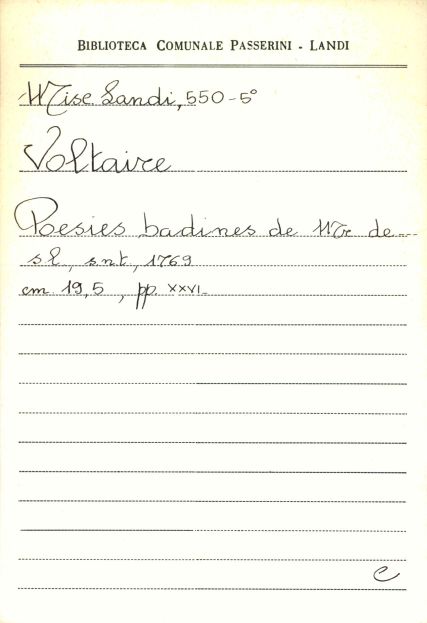 BIBLIOTECA COMUNALE PASSERINI - LANDI
Misc. Landi, 550-5°
Voltaire
Poesies badines de Mr de---
s l, snt, 1769
cm 19,5, pp. XXVI-
C